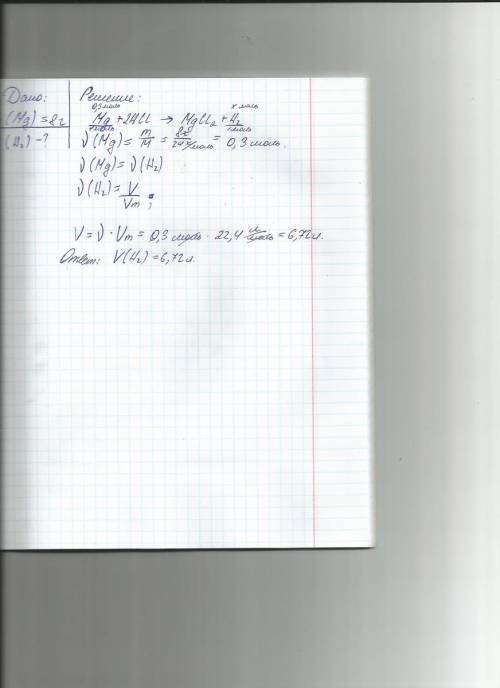 Дано:
(Mg) = 8г
(H₂) - ?
Решение:
0,3 моль x моль
Mg + 2HCl → MgCl₂ + H₂
1 моль 1 моль
ν(Mg) = m/M = 8г/24 г/моль = 0,3 моль.
ν(Mg) = ν(H₂)
ν(H₂) = V/Vm ;
V = ν · Vm = 0,3 моль · 22,4 л/моль = 6,72 л.
Ответ: V(H₂) = 6,72 л.